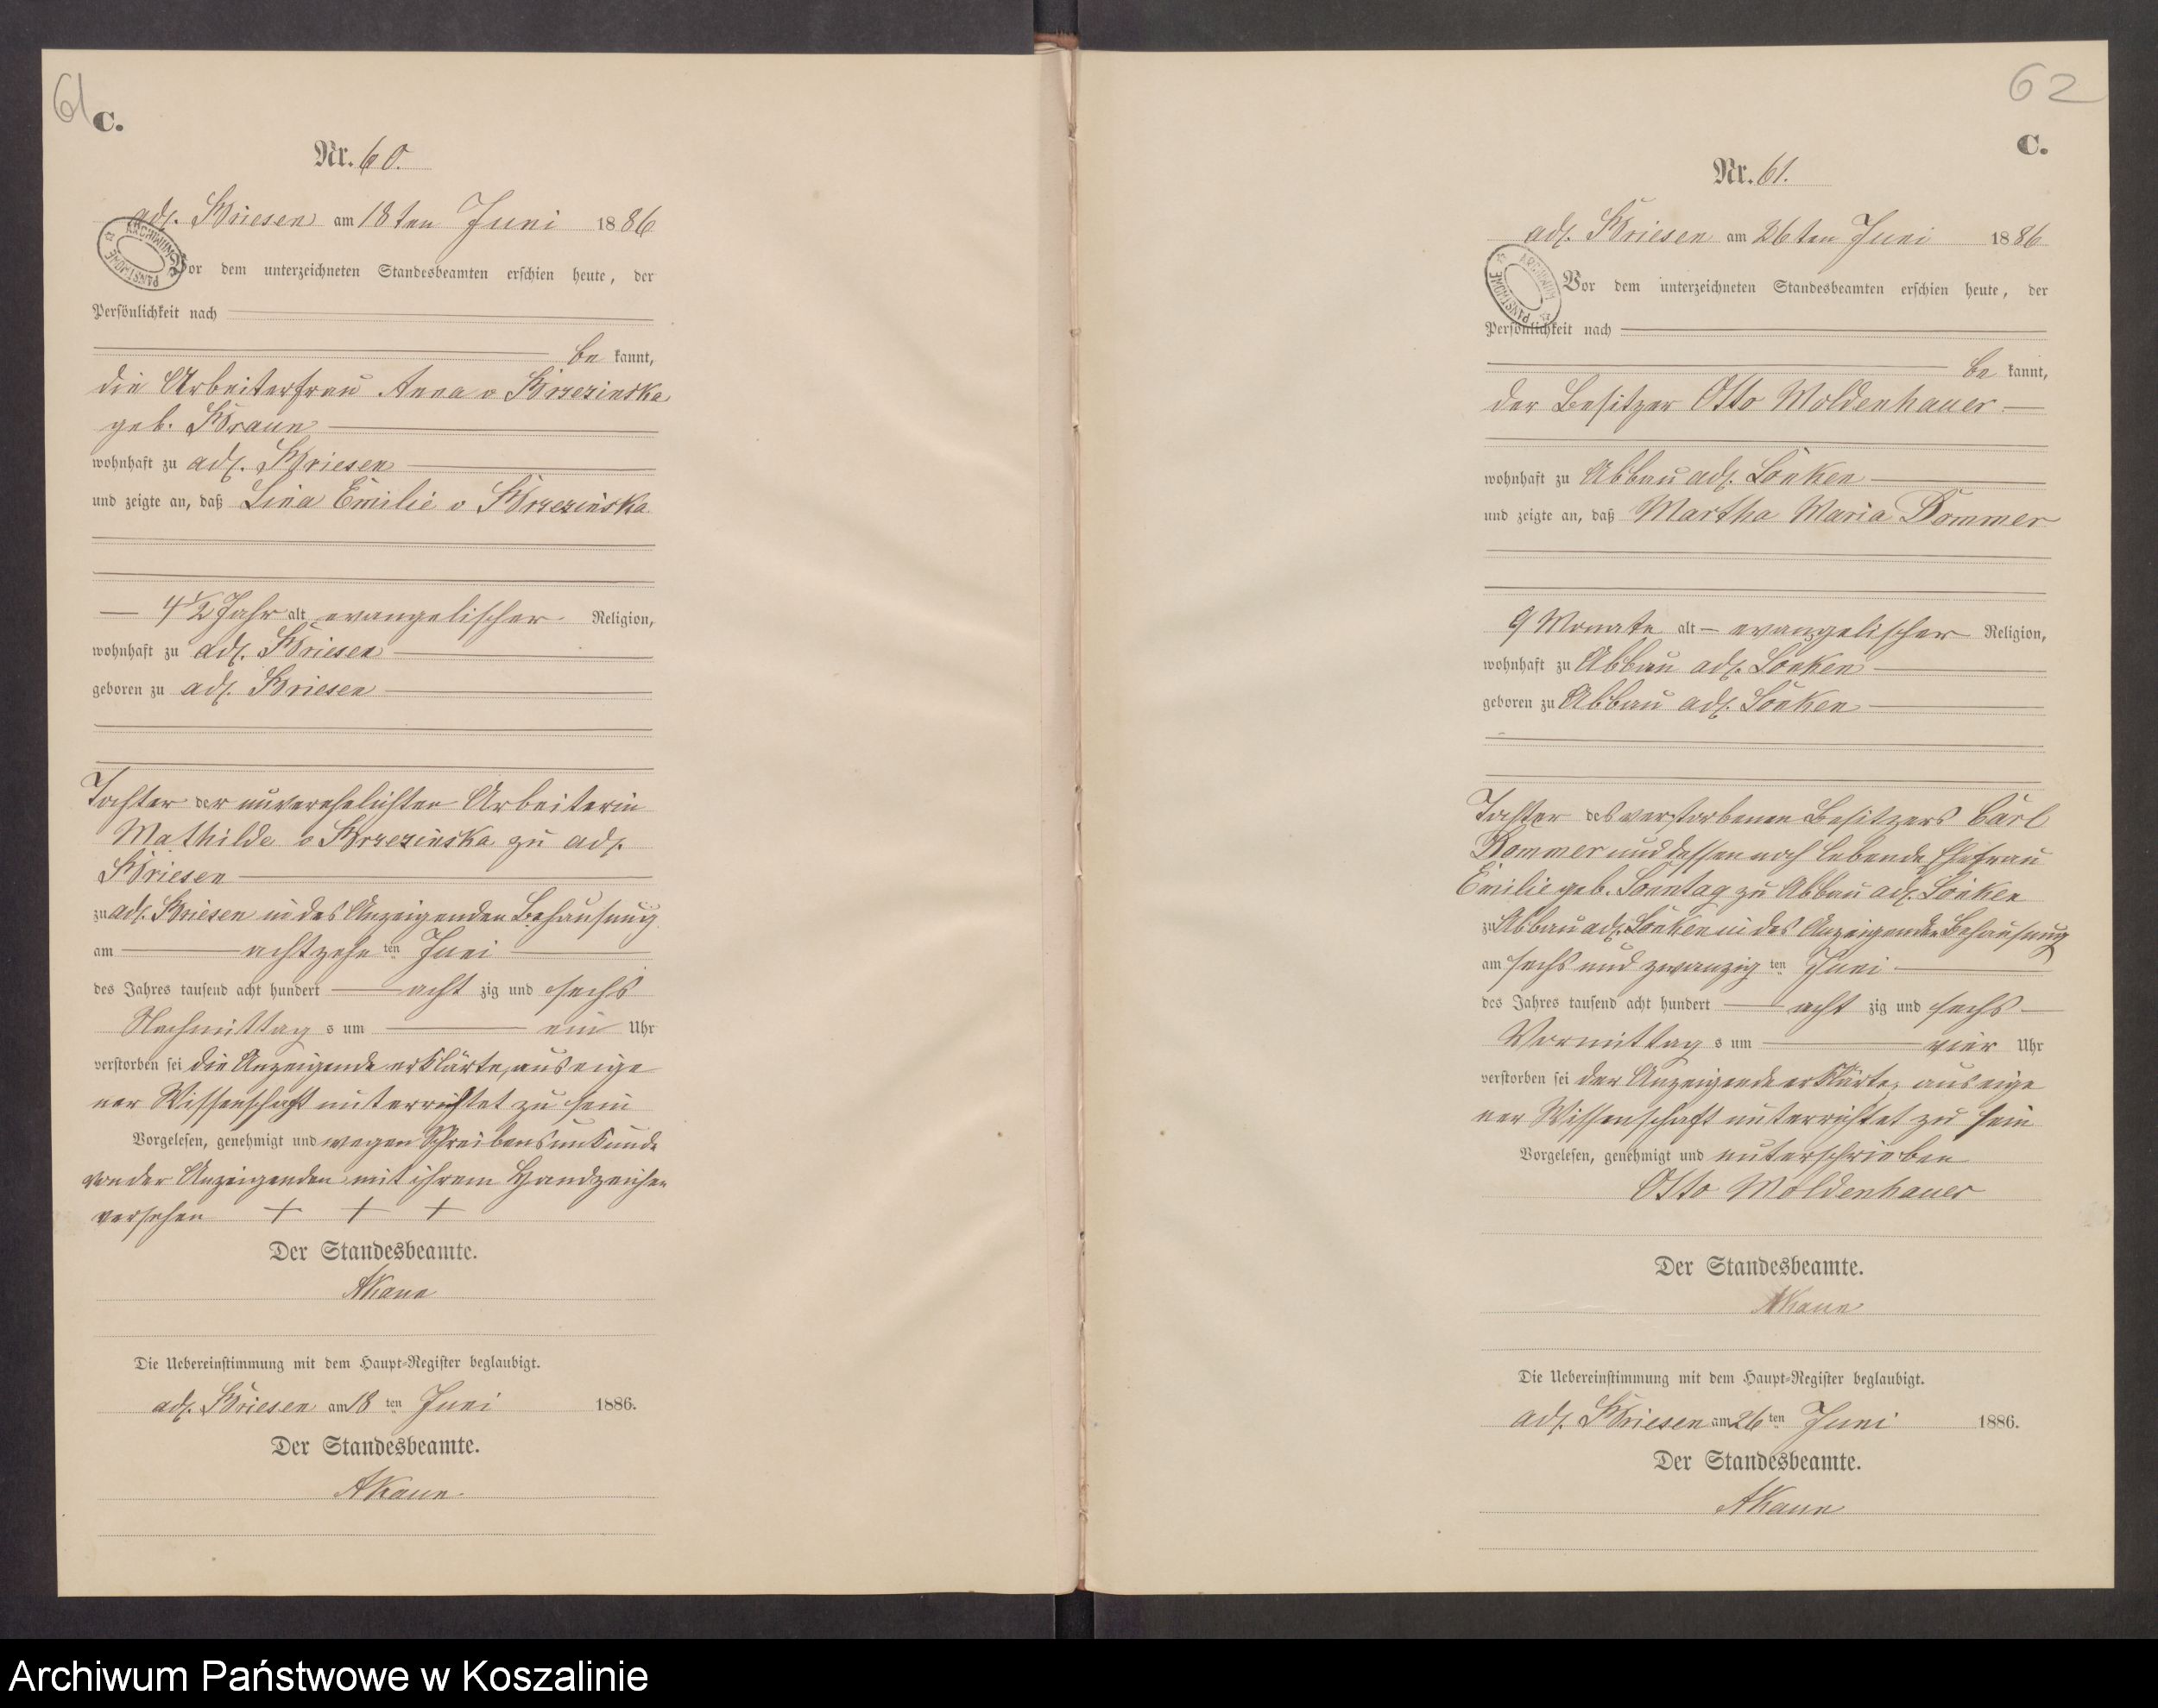 61
C.
Nr. 60.
adl. Briesen am 18ten Juni 1886
Vor dem unterzeichneten Standesbeamten erschien heute, der
Persönlichkeit nach
be kannt,
die Arbeiterfrau Anna v Brzezinska
geb. Braun
wohnhaft zu adl. Briesen
und zeigte an, daß Lina Emilie v Brzezinska
4 1/2 Jahr alt evangelischer Religion,
wohnhaft zu adl. Briesen
geboren zu adl. Briesen
Tochter der unverehelichten Arbeiterin
Mathilde v Brzezinska zu adl.
Briesen
zu adl. Briesen in des Anzeigenden Behausung
am achtzehn ten Juni
des Jahres tausend acht hundert acht zig und sechs
Nachmittag s um ein Uhr
verstorben sei die Anzeigende erklärte, aus eige
ner Wissenschaft unterrichtet zu sein
Vorgelesen, genehmigt und wegen Schreibensunkunde
von der Anzeigenden mit ihrem Handzeichen
versehen + + +
Der Standesbeamte.
AKaun
Die Uebereinstimmung mit dem Haupt-Register beglaubigt.
adl. Briesen am 18 ten Juni 1886.
Der Standesbeamte.
AKaun.
62
C.
Nr. 61.
adl. Briesen am 26ten Juni 1886
Vor dem unterzeichneten Standesbeamten erschien heute, der
Persönlichkeit nach
be kannt,
der Besitzer Otto Moldenhauer
wohnhaft zu Abbau adl. Lonken
und zeigte an, daß Martha Maria Dommer
9 Monate alt evangelischer Religion,
wohnhaft zu Abbau adl. Lonken
geboren zu Abbau adl. Lonken
Tochter des verstorbenen Besitzers Carl
Dommer und dessen noch lebende Ehefrau
Emilie geb. Sonntag zu Abbau adl. Lonken
zu Abbau adl. Lonken in des Anzeigenden Behausung
am sechs und zwanzig ten Juni
des Jahres tausend acht hundert acht zig und sechs
Vormittag s um vier Uhr
verstorben sei der Anzeigende erklärte, aus eige
ner Wissenschaft unterrichtet zu sein
Vorgelesen, genehmigt und unterschrieben
Otto Moldenhauer
Der Standesbeamte.
AKaun
Die Uebereinstimmung mit dem Haupt-Register beglaubigt.
adl. Briesen am 26 ten Juni 1886.
Der Standesbeamte.
AKaun
Archiwum Państwowe w Koszalinie